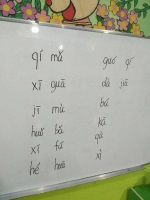 qí mǎ
xī guā
jī mù
huǒ bǎ
xī fú
hé huā
guó qí
dà jiā
bá
kā
qà
xǐ